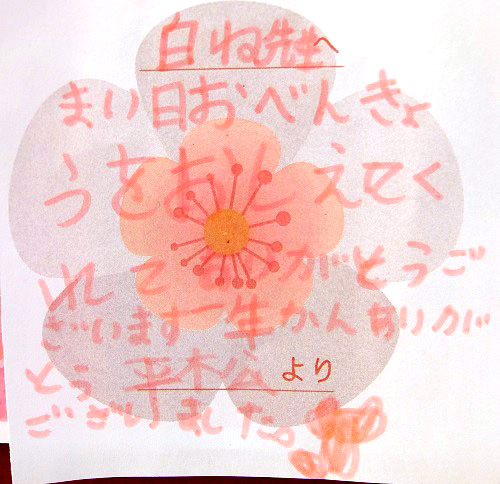 白ね先生へ
まい日おべんきょ
うをおしえてく
れてありがとうご
ざいます一年かんありが
とう平木公より
ございました。